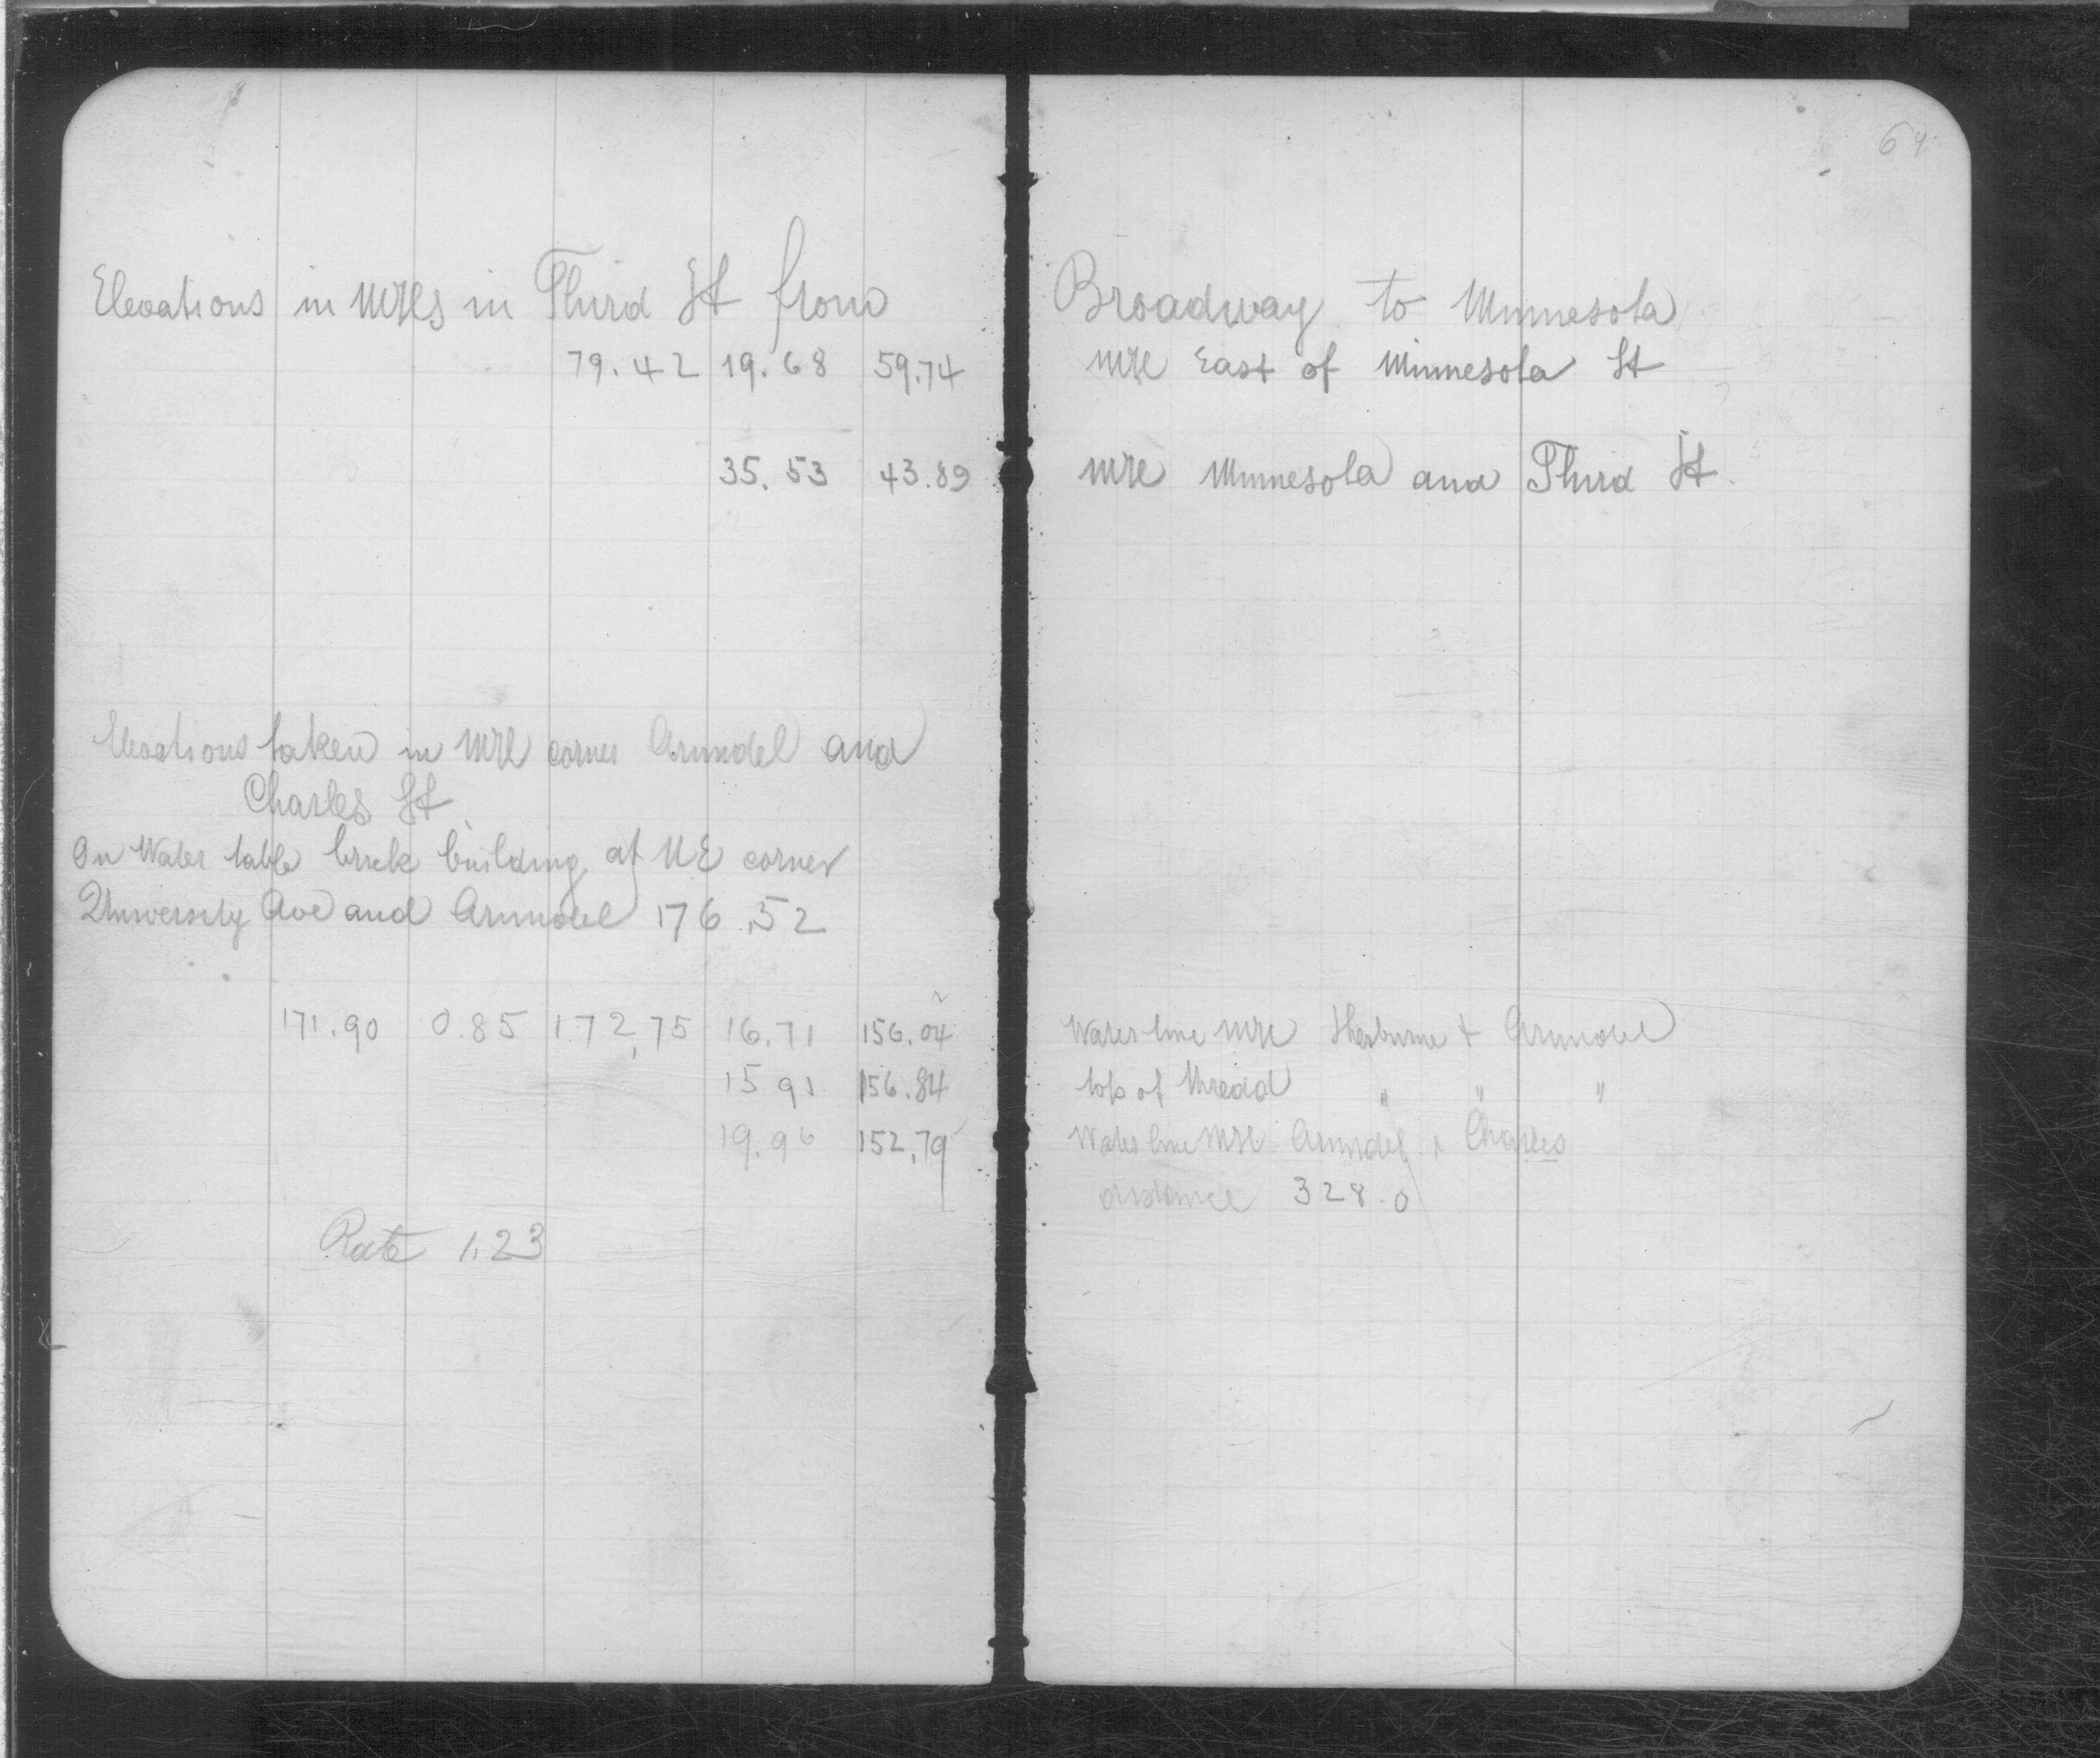 64
Elevations in MHs in Third St from Broadway to Minnesota
79.42 19.68 59.74 MH East of Minnesota St
35.53 43.89 MH Minnesota and Third St.
Elevations taken in MH corner Arundel and
Charles St
On Water table brick building at NE corner
University Ave and Arundel 176.52
171.90 0.85 172.75 16.71 156.04 Water line MH Sherburne + Arundel
15 91 156.84 top of thread " " "
19.96 152.79 Water line MH Arundel + Charles
distance 328.0
Rate 1.23